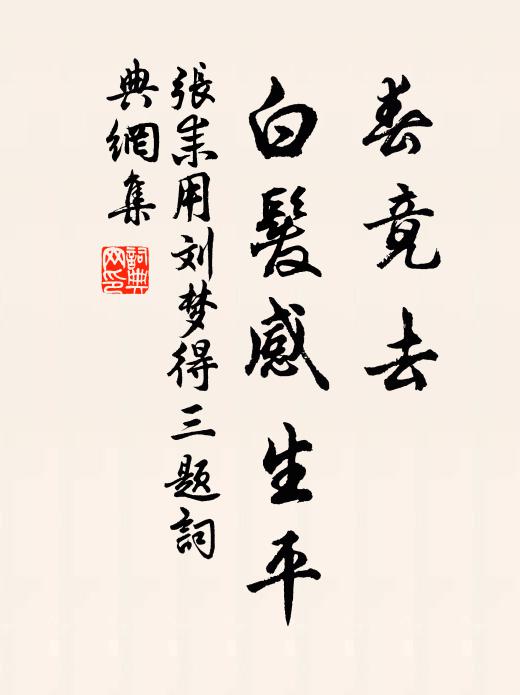 春竟去
白髮感生平
張耒用刘梦得三题詞
典網集
詞典
网印